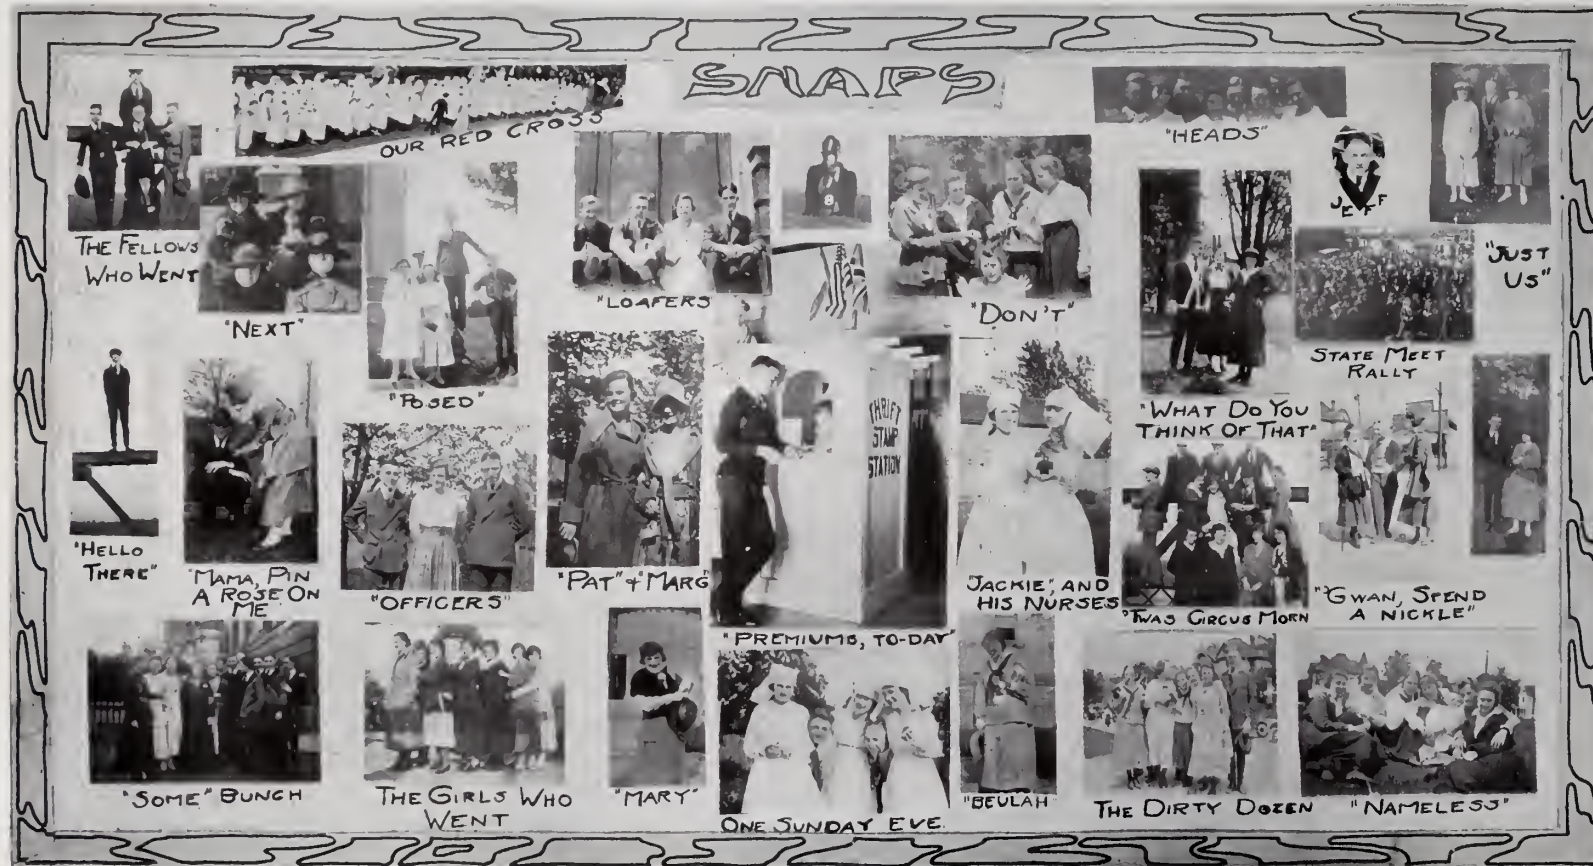 SNAPS
OUR RED CROSS
"HEADS"
JEFF
THE FELLOWS
WHO WENT
"NEXT"
"POSED"
"LOAFERS
8
"DON'T"
"JUST
US"
STATE MEET
RALLY
"WHAT DO YOU
THINK OF THAT"
"HELLO
THERE"
"MAMA, PIN
A ROSE ON
ME
"OFFICERS"
"PAT" & "MARG"
THRIFT
STAMP
STATION
"PREMIUMS, TO-DAY"
JACKIE", AND
HIS NURSES
"TWAS CIRCUS MORN
"G'WAN, SPEND
A NICKLE"
"SOME" BUNCH
THE GIRLS WHO
WENT
"MARY"
ONE SUNDAY EVE.
"BEULAH"
THE DIRTY DOZEN
"NAMELESS"